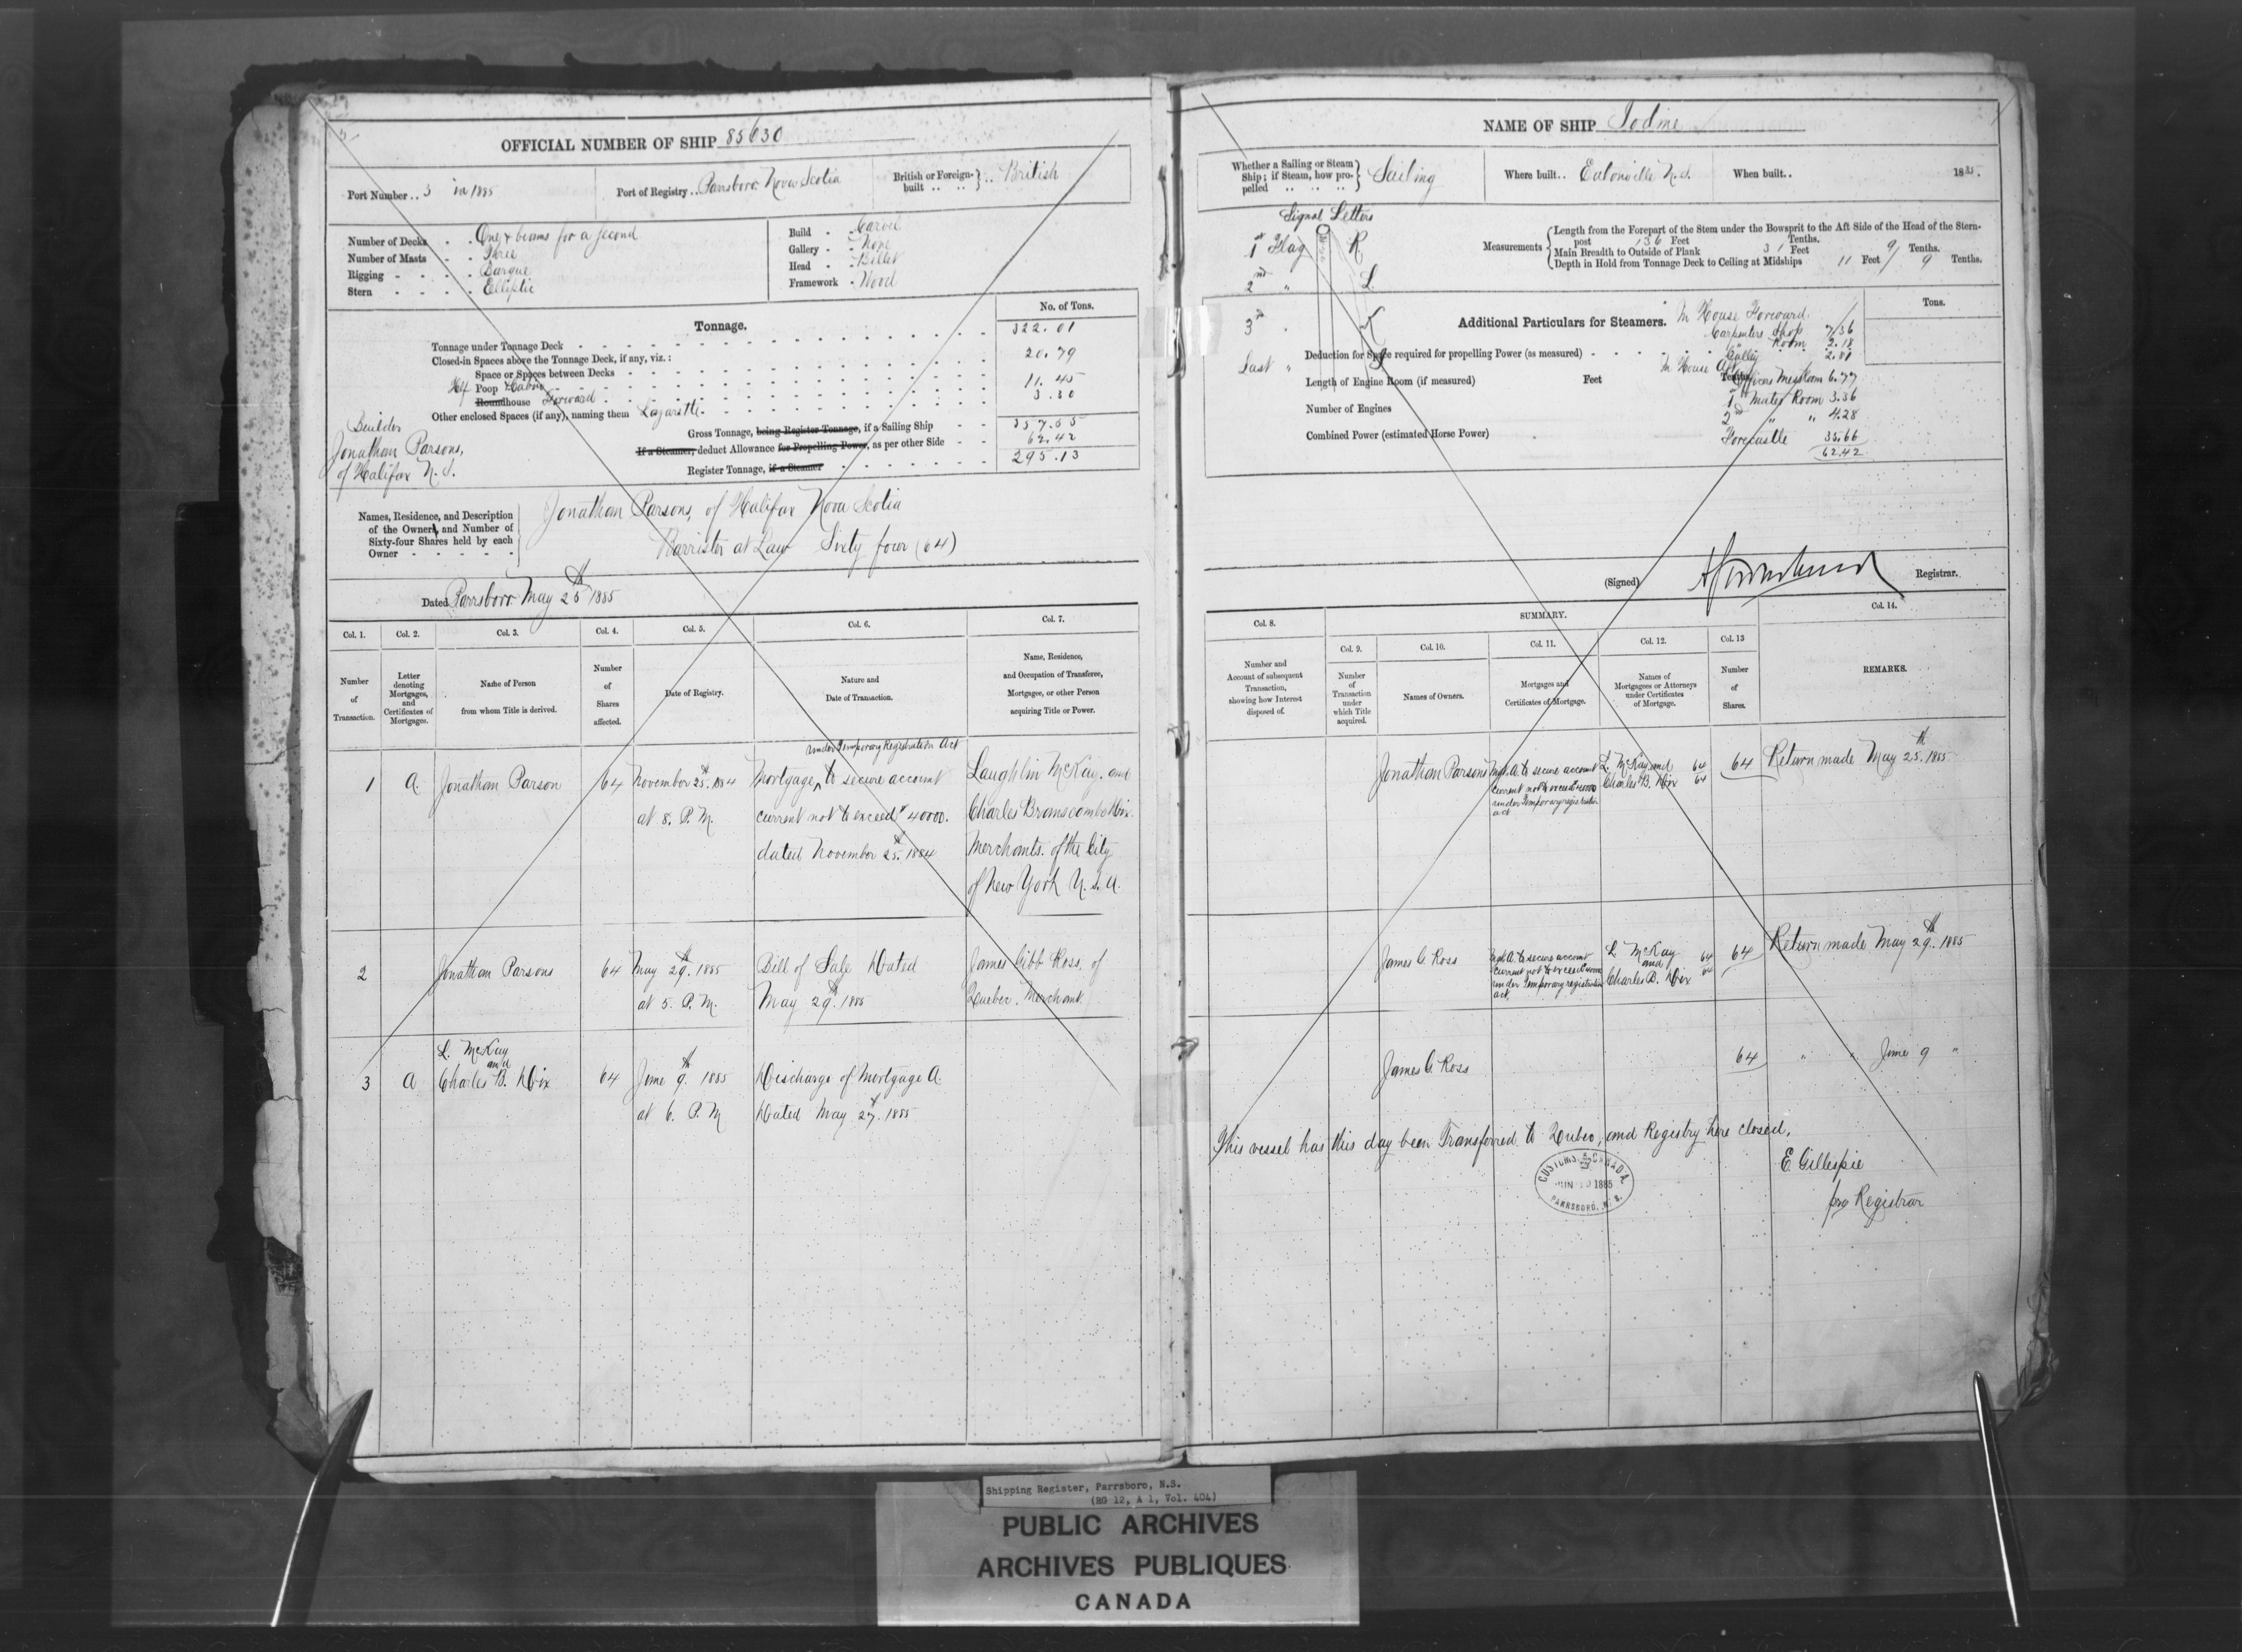 OFFICIAL NUMBER OF SHIP 85630
Port Number .. 3 in 1885
Port of Registry .. Parrsboro. Nova Scotia
British or Foreign-built .. .. } .. British
Number of Decks - - One & beams for a second
Number of Masts - - Three
Rigging - - - - Barque
Stern - - - - Elliptic
Build - - Carvel
Gallery - - None
Head - - Billet
Framework - Wood
Tonnage.
No. of Tons.
Tonnage under Tonnage Deck 322.01
Closed-in Spaces above the Tonnage Deck, if any, viz.:
Space or Spaces between Decks
Hf Poop & Cabin 20.79
Hf Roundhouse Forward 11.45
Other enclosed Spaces (if any), naming them Lazarette 3.30
Gross Tonnage, being Register Tonnage, if a Sailing Ship 357.55
If a Steamer, deduct Allowance for Propelling Power, as per other Side 62.42
Register Tonnage, if a Steamer 295.13
Builder
Jonathan Parsons,
of Halifax N.S.
Names, Residence, and Description
of the Owners, and Number of
Sixty-four Shares held by each
Owner - - - - -
Jonathan Parsons, of Halifax Nova Scotia
Barrister at Law Sixty four (64)
Dated Parrsboro May 25th 1885
Col. 1. Col. 2. Col. 3. Col. 4. Col. 5. Col. 6. Col. 7.
Number of Transaction.
Letter denoting Mortgages, and Certificates of Mortgages.
Name of Person from whom Title is derived.
Number of Shares affected.
Date of Registry.
Nature and Date of Transaction.
Name, Residence, and Occupation of Transferee, Mortgagee, or other Person acquiring Title or Power.
under Temporary Registration Act
1 A. Jonathan Parson 64 November 25th. 1884 Mortgage, to secure account Laughlin McKay. and
at 8. P.M. current not to exceed $40000. Charles Branscombe Dix.
dated November 25th. 1884 Merchants. of the City
of New York U.S.A.
2 Jonathan Parsons 64 May 29th. 1885 Bill of Sale Dated James Gibb Ross, of
at 5. P.M. May 29th. 1885 Quebec. Merchant.
L. McKay
and
3 A Charles B. Dix 64 June 9th. 1885 Discharge of Mortgage A.
at 6. P.M Dated May 27th. 1885
NAME OF SHIP Iodine
Whether a Sailing or Steam Ship; if Steam, how propelled .. .. .. } Sailing
Where built.. Eatonville N.S.
When built.. 1885.
Signal Letters
1st Flag R
2nd " L
3rd " K
Last "
Measurements
Length from the Forepart of the Stem under the Bowsprit to the Aft Side of the Head of the Stern-
post 136 Feet Tenths.
Main Breadth to Outside of Plank 31 Feet 9 Tenths.
Depth in Hold from Tonnage Deck to Ceiling at Midships 11 Feet 9 Tenths.
Additional Particulars for Steamers.
Tons.
In House Forward
Carpenters Shop 7.36
" Room 2.18
Galley 2.81
In House Aft
Officers Messroom 6.77
1st Mates Room 3.36
2nd " " 4.28
Forecastle 35.66
62.42
Deduction for Space required for propelling Power (as measured)
Length of Engine Room (if measured) Feet Tenths.
Number of Engines
Combined Power (estimated Horse Power)
(Signed) Registrar.
Col. 8. SUMMARY. Col. 14.
Col. 9. Col. 10. Col. 11. Col. 12. Col. 13
Number and Account of subsequent Transaction, showing how Interest disposed of.
Number of Transaction under which Title acquired.
Names of Owners.
Mortgages and Certificates of Mortgage.
Names of Mortgagees or Attorneys under Certificates of Mortgage.
Number of Shares.
REMARKS.
Jonathan Parsons Mgt. A. to secure account L. McKay and 64 64 Return made May 25th. 1885
current not to exceed $40000 Charles B. Dix 64
under Temporary registration
act
James G Ross Mgt A. to secure account L. McKay 64 64 Return made May 29th. 1885
current not to exceed $40000 and
under Temporary registration Charles B. Dix 64
act.
James G. Ross 64 " " June 9 "
This vessel has this day been Transferred to Quebec, and Registry here closed,
E. Gillespie
pro Registrar
CUSTOMS CANADA
JUN 10 1885
PARRSBORO, N.S.
Shipping Register, Parrsboro, N.S.
(RG 12, A 1, Vol. 404)
PUBLIC ARCHIVES
ARCHIVES PUBLIQUES
CANADA